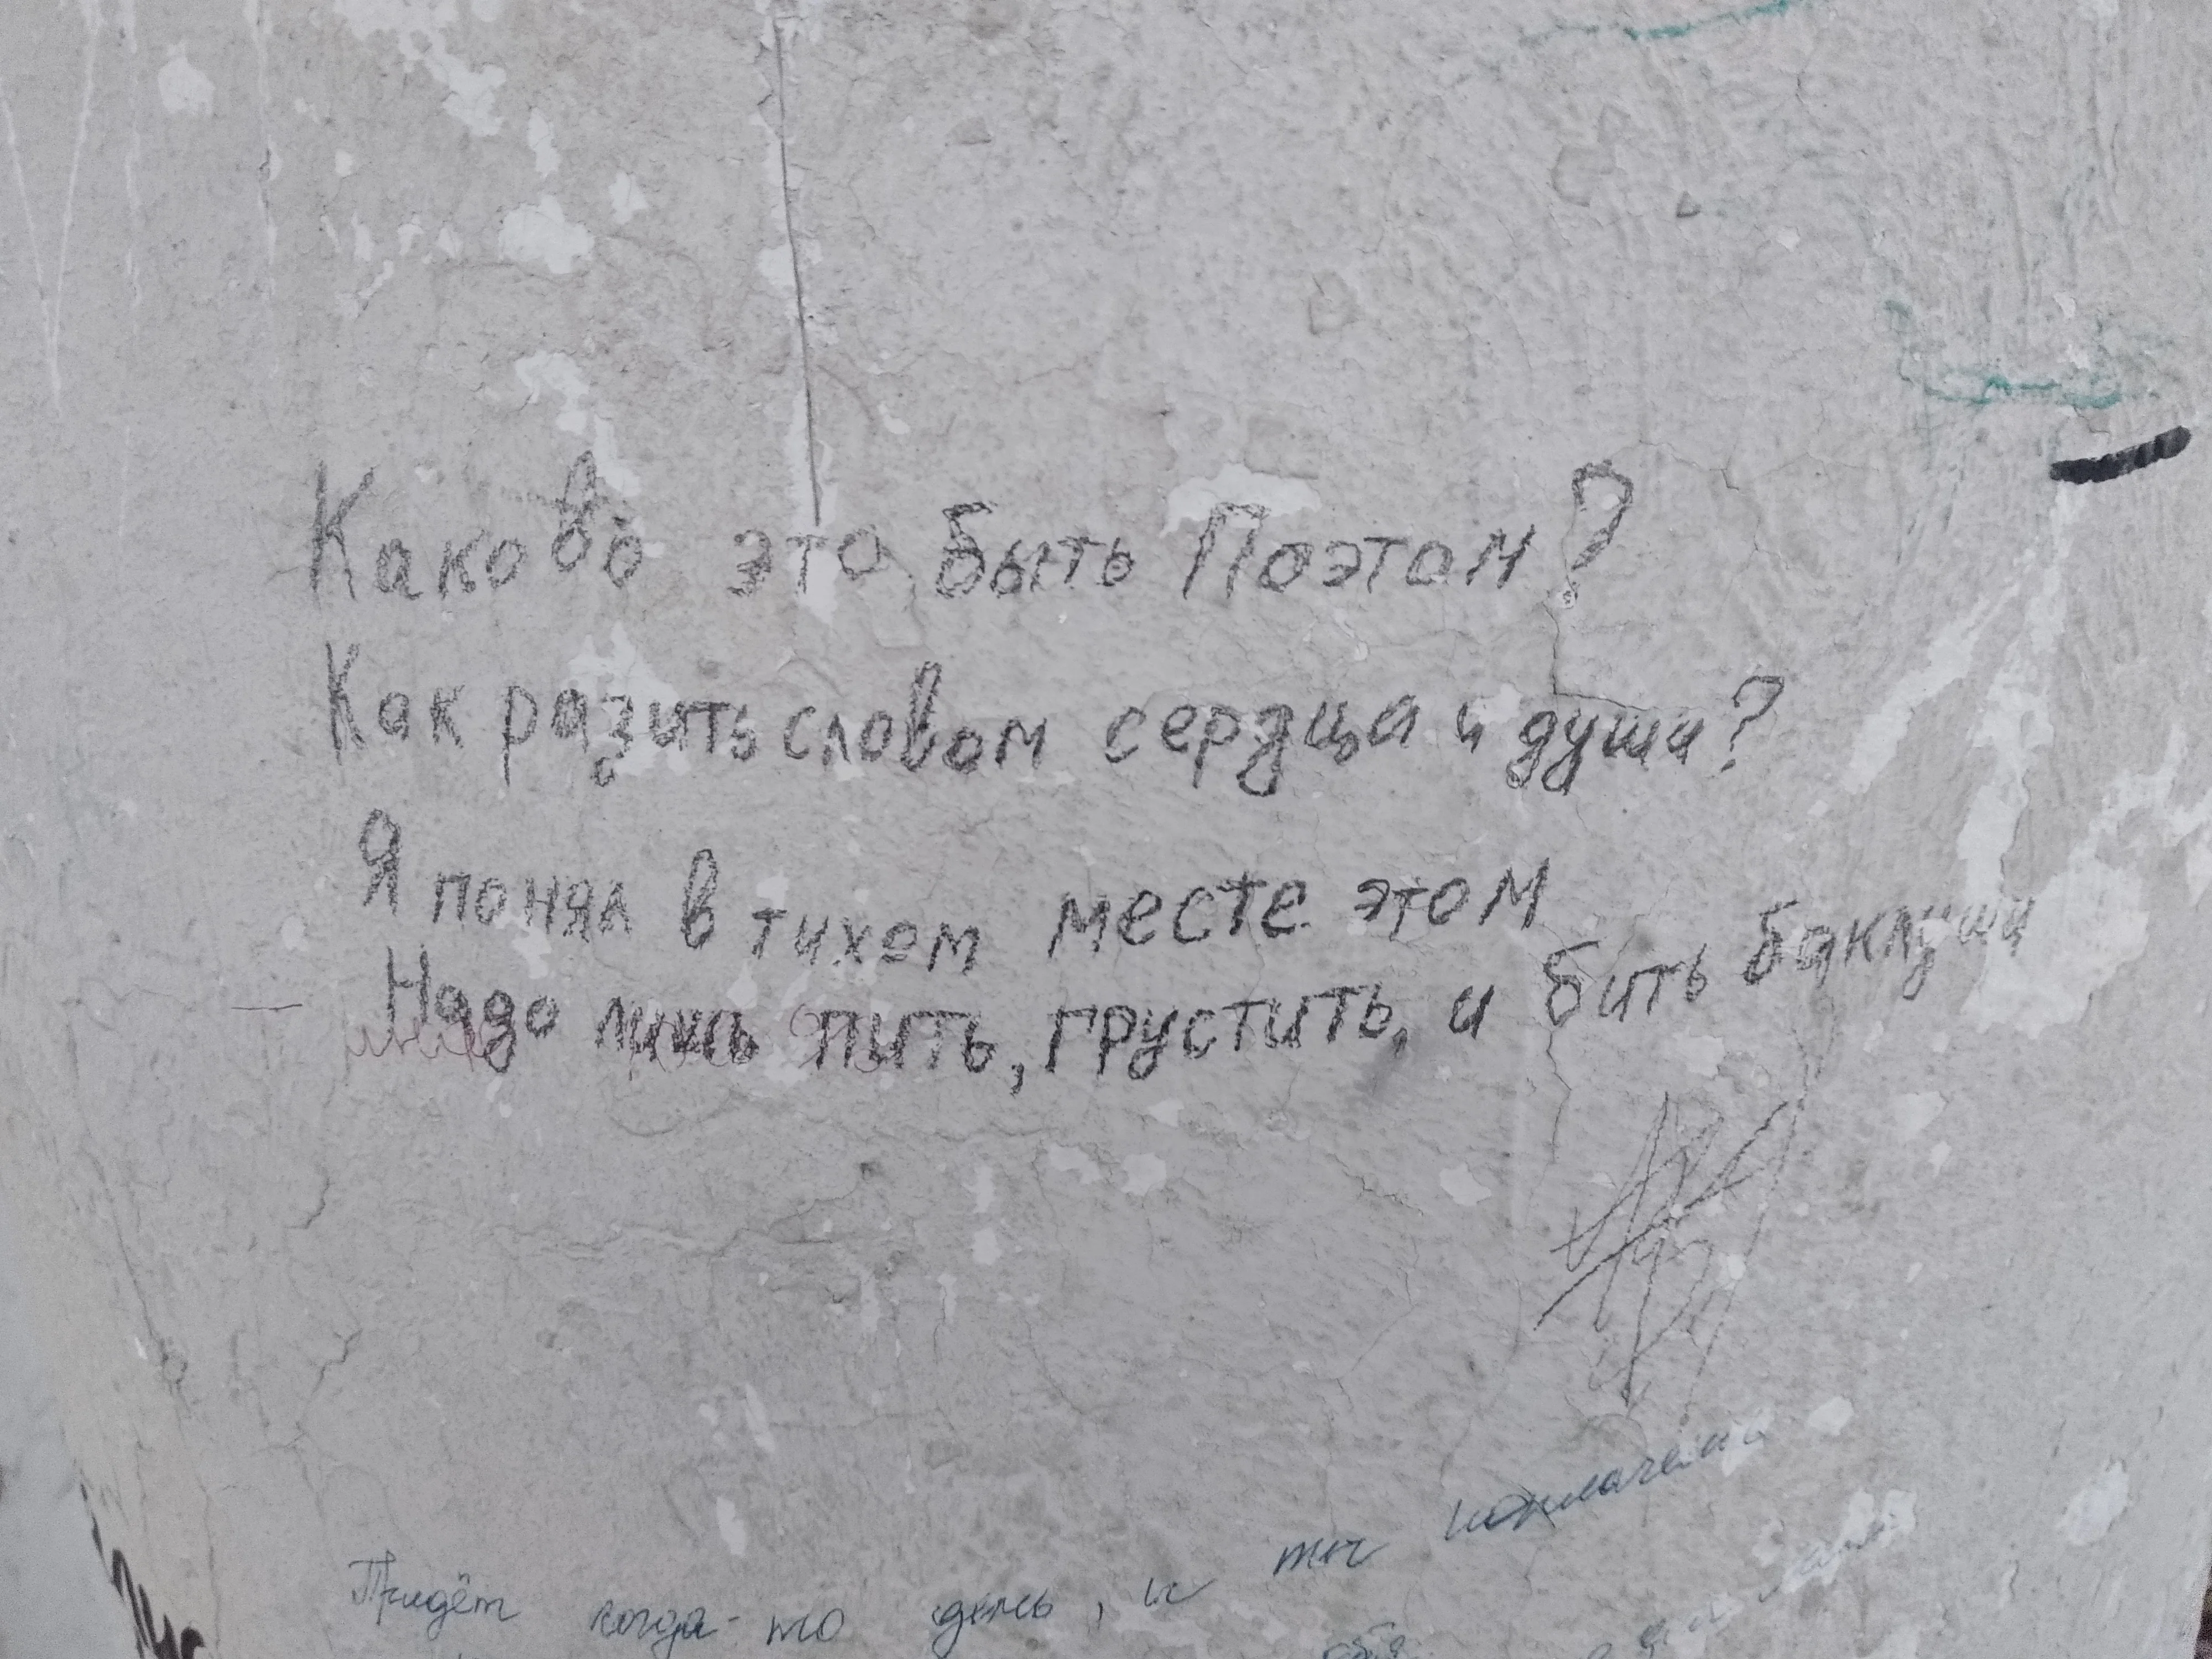 Каково это быть Поэтом?
Как разить словом сердца и души?
Я понял в тихом месте этом
Надо лишь пить, грустить, и бить баклуши
Придёт когда-то день, и ты